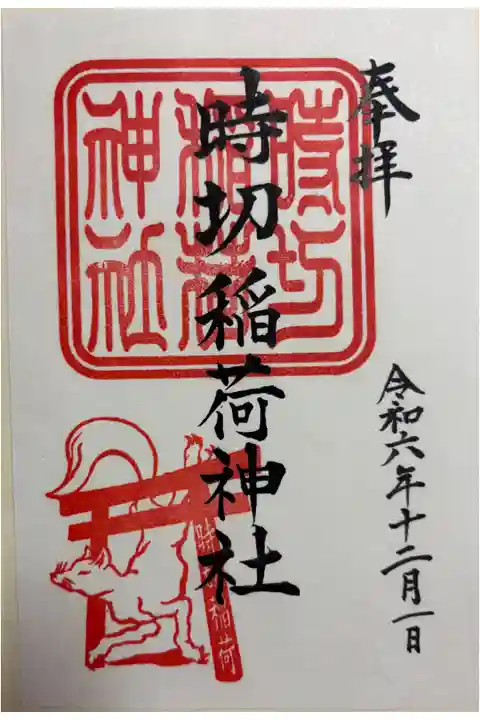 奉拝
時切稲荷神社
令和六年十二月一日
時切
稲荷
神社
時切稲荷